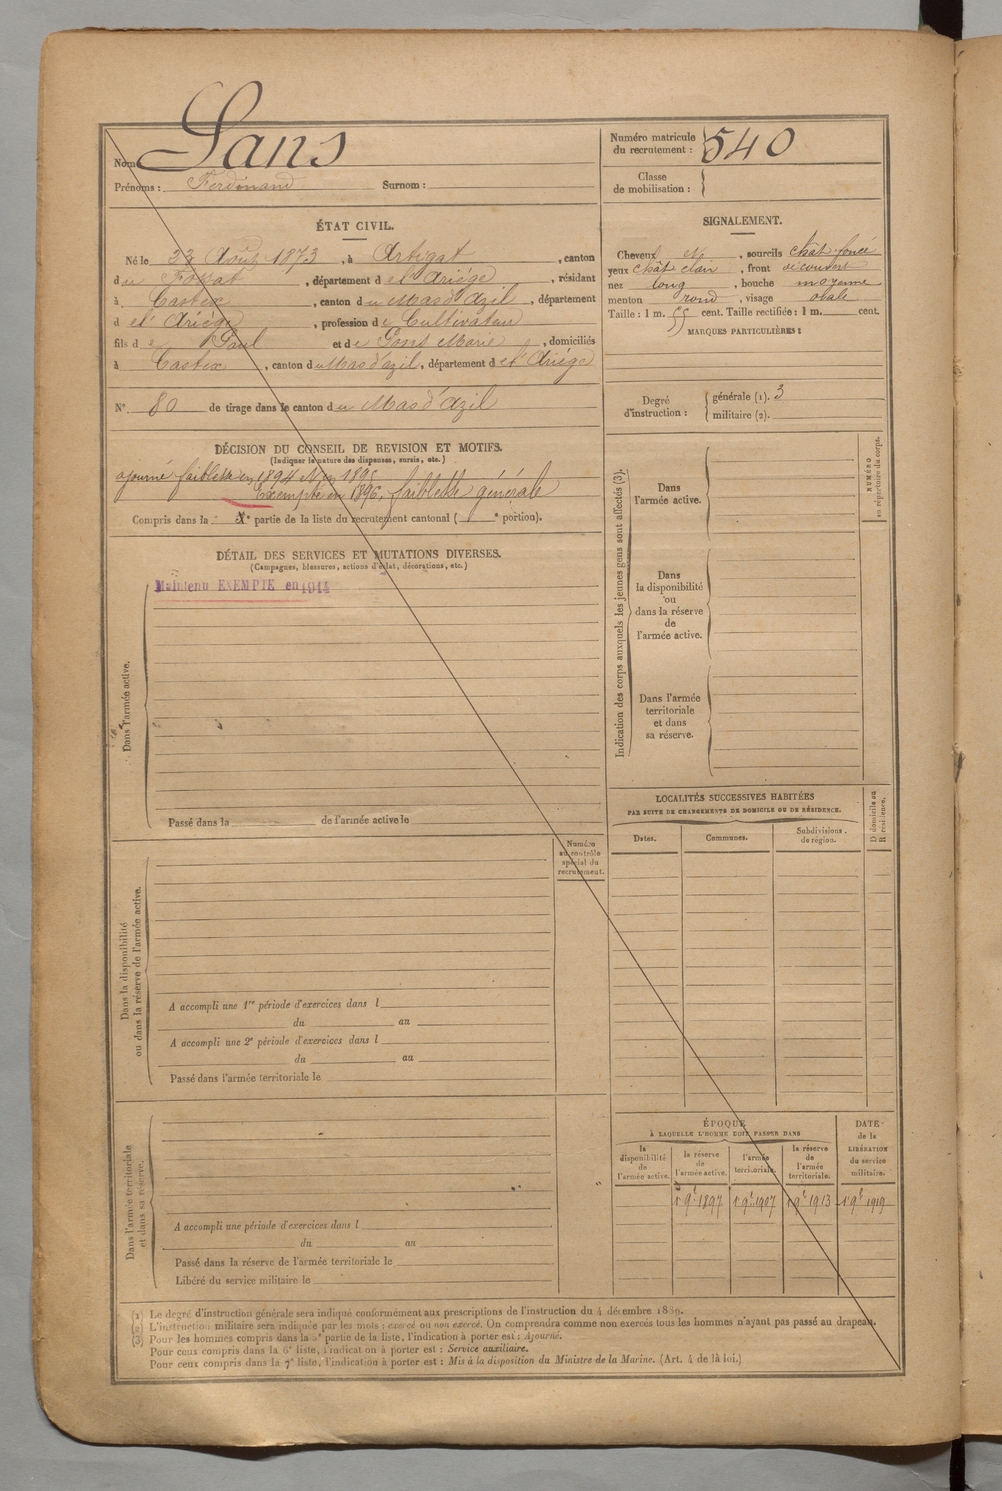 Nom Sans
Prénoms : Ferdinand Surnom :
Numéro matricule du recrutement : 540
Classe de mobilisation :
ÉTAT CIVIL.
Né le 23 Août 1873, à Artigat, canton
du Fossat, département de l'Ariége, résidant
à Castex, canton du Mas d'Azil, département
d el' Ariége, profession de Cultivateur
fils de Paul et de Pons Marie, domiciliés
à Castex, canton du Mas d'azil, département de l'Ariége
N° 80 de tirage dans le canton du Mas d'Azil
DÉCISION DU CONSEIL DE REVISION ET MOTIFS.
(Indiquer la nature des dispenses, sursis, etc.)
ajourné faiblesse en 1894 N en 1895
Exempté en 1896, faiblesse générale
Compris dans la e partie de la liste du recrutement cantonal ( e portion).
DÉTAIL DES SERVICES ET MUTATIONS DIVERSES.
(Campagnes, blessures, actions d'éclat, décorations, etc.)
Maintenu EXEMPTE en 1914
Dans l'armée active.
Passé dans la de l'armée active le
Numéro au contrôle spécial du recrutement.
Dans la disponibilité ou dans la réserve de l'armée active.
A accompli une 1re période d'exercices dans l
du au
A accompli une 2e période d'exercices dans l
du au
Passé dans l'armée territoriale le
Dans l'armée territoriale et dans sa réserve.
A accompli une période d'exercices dans l
du au
Passé dans la réserve de l'armée territoriale le
Libéré du service militaire le
SIGNALEMENT.
Cheveux N, sourcils chât foncé
yeux chât clair, front découvert
nez long, bouche moyenne
menton rond, visage ovale
Taille : 1 m. 55 cent. Taille rectifiée : 1 m. cent.
MARQUES PARTICULIÈRES :
Degré d'instruction :
générale (1). 3
militaire (2).
Indication des corps auxquels les jeunes gens sont affectés (3).
NUMÉRO au répertoire du corps.
Dans l'armée active.
Dans la disponibilité ou dans la réserve de l'armée active.
Dans l'armée territoriale et dans sa réserve.
LOCALITÉS SUCCESSIVES HABITÉES
PAR SUITE DE CHANGEMENTS DE DOMICILE OU DE RÉSIDENCE.
D domicile ou R résidence.
Dates. Communes. Subdivisions de région.
ÉPOQUE
À LAQUELLE L'HOMME DOIT PASSER DANS
DATE de la LIBÉRATION du service militaire.
la disponibilité de l'armée active. la réserve de l'armée active. l'armée territoriale. la réserve de l'armée territoriale.
1r 9bre 1897 1r 9bre 1907 1r 9bre 1913 1r 9bre 1919
(1) Le degré d'instruction générale sera indiqué conformément aux prescriptions de l'instruction du 4 décembre 1889.
(2) L'instruction militaire sera indiquée par les mots : exercé ou non exercé. On comprendra comme non exercés tous les hommes n'ayant pas passé au drapeau.
(3) Pour les hommes compris dans la 5e partie de la liste, l'indication à porter est : Ajourné.
Pour ceux compris dans la 6e liste, l'indication à porter est : Service auxiliaire.
Pour ceux compris dans la 7e liste, l'indication à porter est : Mis à la disposition du Ministre de la Marine. (Art. 4 de la loi.)